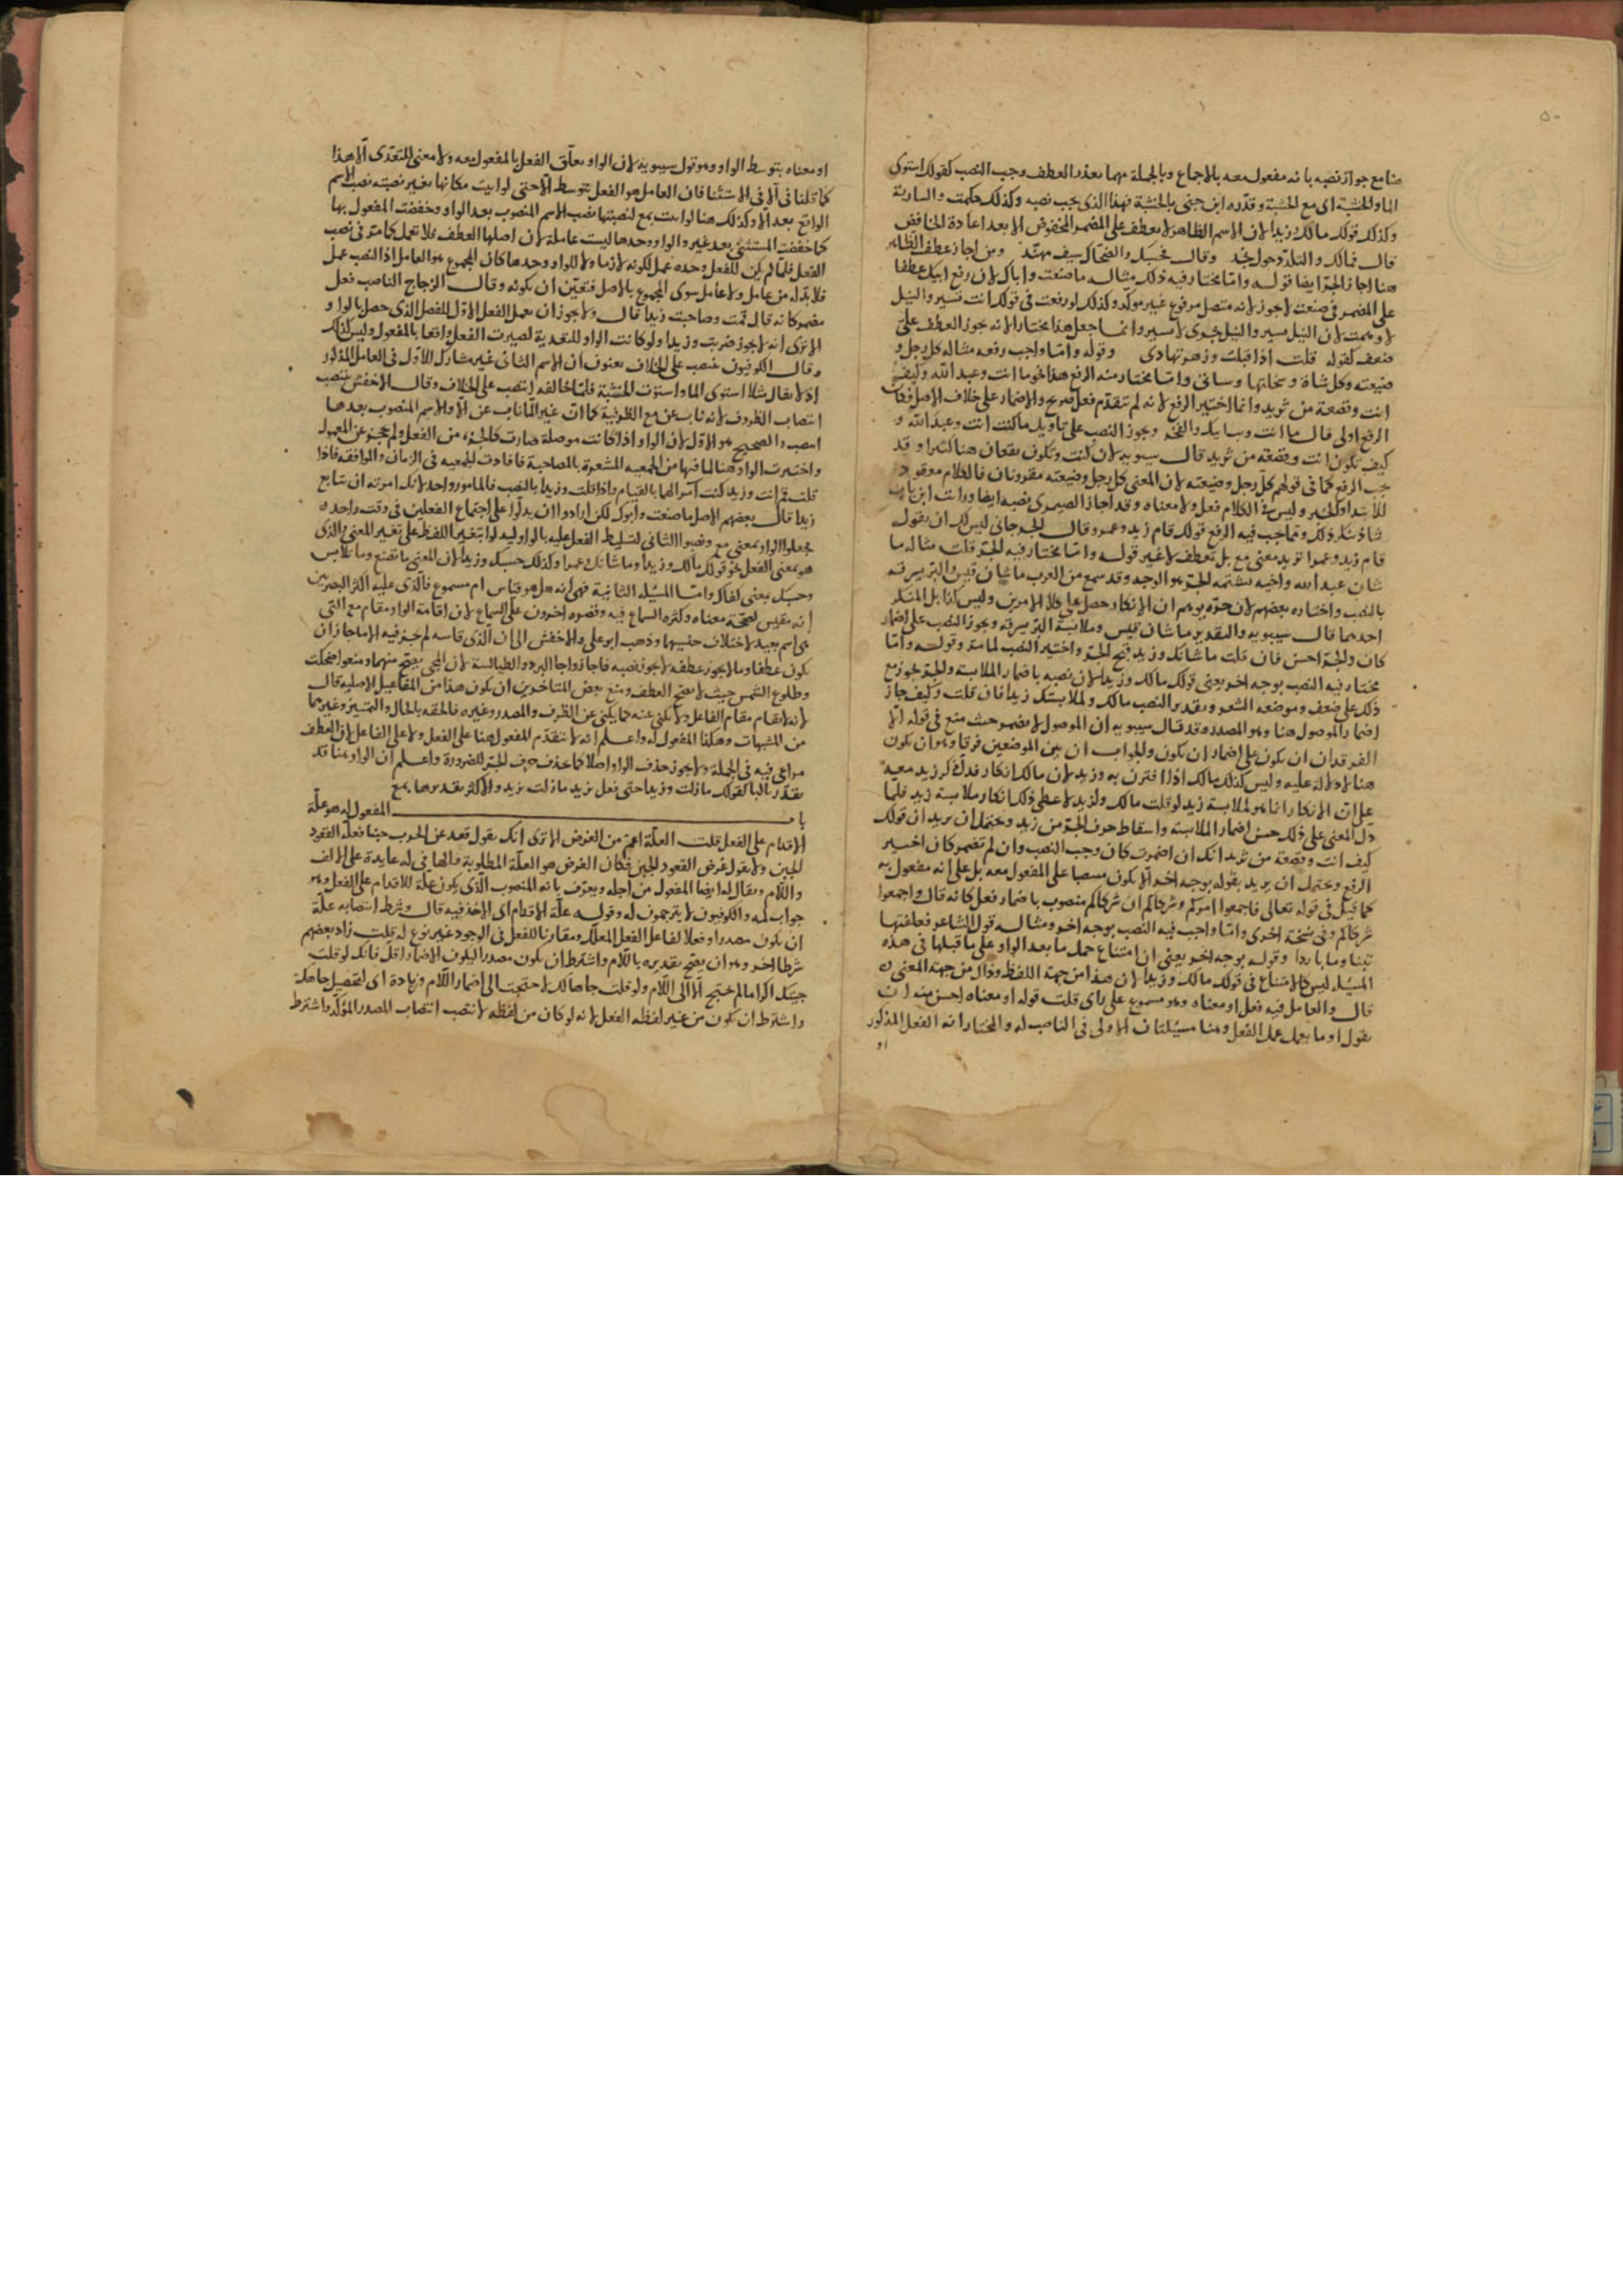 ٥٠
هنا مع جواز نصبه بانه مفعول معه بالاجماع وبالجملة مهما تعذر العطف وجب النصب كقولك استوى
الما والخشبة اى مع الخشبة وقدره ابن جنى بالخشبة فهذا الذى يجب نصبه وكذلك والسارية
وكذلك قولك مالك وزيدا لان الاسم الظاهر لا يعطف على المضمر المخفوض الا بعد اعادة الخافض
قال فمالك والتلدد حول نجد وقال فحسبك والضحاك سيف مهند ومن اجاز عطف الظاهر
هنا اجاز الجر ايضا قوله واما مختار فيه ذلك مثاله ما صنعت واباك لان رفع ابيك عطفا
على المضمر فى صنعت لا يجوز لانه متصل مرفوع غير موكد وكذلك لو رفعت فى قولك انت تسير والنيل
لان النيل يسير والنيل يجرى لا يسير وانما جعل هذا مختارا لانه يجوز العطف على
ضعف كقوله قلت اذ اقبلت وزهر تهادى وقوله واما واجب رفعه مثاله كل رجل و
ضيعته وكل شاة وسخلتها وساقى واما مختار منه الرفع هذا نحو ما انت وعبد الله وكيف
انت وقصعة من ثريد وانما اختير الرفع لانه لم يتقدم فعل صريح والاضمار على خلاف الاصل فكان
الرفع اولى قال ما انت وبيب ابيك والفخر ويجوز النصب على تاويل ما كنت انت وعبد الله و
كيف تكون انت وقصعة من ثريد قال سيبويه لان كنت وتكون يقعان هنا كثيرا وقد
يجب الرفع كما فى قولهم كل رجل وضيعته لان المعنى كل رجل وضيعته مقرونان فالكلام معقود
للابتدا والخبر وليس فى الكلام فعل ولا معناه وقد اجاز الصيمرى نصبه ايضا ورايت ابن
شاذ ينكر ذلك ومما يجب فيه الرفع قولك قام زيد وعمرو وقال الجرجانى ليس لك ان تقول
قام زيد وعمرا تريد معنى مع بل تعطف لا غير قوله واما مختار فيه الجر قلت مثاله ما
شان عبد الله واخيه يشتمه الجر هو الوجه وقد سمع من العرب ما شان قيس والبر يسرقه
بالنصب واختاره بعضهم لان جره يوهم ان الانكار حصل على كلا الامرين وليس كذا بل المنكر
احدهما قال سيبويه والتقدير ما شان قيس وملابسة البر يسرقه ويجوز النصب على اضمار
كان والجر احسن فان قلت ما شانك وزيد قبح الجر واختير النصب لما مر وقوله واما
مختار فيه النصب بوجه اخر يعنى قولك مالك وزيدا لان نصبه باضمار الملابسة والجر يجوز مع
ذلك على ضعف وموضعه الشعر وتقدير النصب مالك والملابستك زيدا فان قلت وكيف جاز
اضمار الموصول هنا وهو المصدر وقد قال سيبويه ان الموصول لا يضمر حيث منع فى قوله الا
الفرقدان ان يكون على اضمار ان يكون والجواب ان بين الموضعين فرقا وهو ان يكون
هنا لا دلالة عليه وليس كذلك مالك اذا اقترن به وزيد لان مالك انكار فدل ذكر زيد معه
على ان الانكار انما هو لملابسة زيد لو قلت مالك ولزيد لاعطى ذلك انكار ملابسة زيد فلما
دل المعنى على ذلك حسن اضمار الملابسة واسقاط حرف الجر من زيد ويحتمل ان يريد ان قولك
كيف انت وقصعة من ثريد انك ان اضمرت كان وجب النصب وان لم تضمر كان اختير
الرفع ويحتمل ان يريد بقوله بوجه اخر الا يكون منتصبا على المفعول معه بل على انه مفعول به
كما قيل فى قوله تعالى فاجمعوا امركم وشركاكم ان شركاكم منصوب باضمار فعل كانه قال واجمعوا
شركاكم وفى نسخة اخرى واما واجب فيه النصب بوجه اخر ومثاله قول الشاعر فعلفتها
تبنا وما باردا وقوله بوجه اخر يعنى ان امتناع حمل ما بعد الواو على ما قبلها فى هذه
المسئله ليس كالامتناع فى قولك مالك وزيدا لان هذا من جهة اللفظ وذاك من جهة المعنى
قال والعامل فيه فعل او معناه وهو مسموع على راى قلت قوله او معناه احسن منه ان
يقول او ما يعمل عمل الفعل وهنا مسئلتان الاولى فى الناصب له والمختار انه الفعل المذكور
او
او معناه بتوسط الواو وهو قول سيبويه لان الواو تعلق الفعل بالمفعول معه ولا معنى للتعدى الا هذا
كما قلنا فى الا فى الاستثنا فان العامل هو الفعل بتوسط الا حتى لو اتيت مكانها بغير نصبته نصب الاسم
الواقع بعد الا وكذلك هنا لو اتيت بمع لنصبتها نصب الاسم المنصوب بعد الواو وخفضت المفعول بها
كما خفضت المستثنى بعد غير والواو وحدها ليست عاملة لان اصلها العطف فلا تعمل كما مر فى نصب
الفعل فلما لم يكن للفعل وحده عمل لكونه لازما ولا للواو وحدها كان المجموع هو العامل اذ النصب عمل
فلا بد له من عامل ولا عامل سوى المجموع بالاصل فتعين ان يكونه وقال الزجاج الناصب فعل
مضمر كانه قال قمت وصاحبت زيدا قال ولا يجوز ان يعمل الفعل الاول للفصل الذى حصل بالواو
الا ترى انه لا يجوز ضربت وزيدا ولو كانت الواو للتعدية لصيرت الفعل واقعا بالمفعول وليس كذلك
وقال الكوفيون ينتصب على الخلاف يعنون ان الاسم الثانى غير مشارك للاول فى العامل المذكور
اذ لا يقال مثلا استوى الما واستوت الخشبة فلما خالفه انتصب على الخلاف وقال الاخفش ينتصب
انتصاب الظروف لانه ناب عن مع الظرفية كما ان غير لما ناب عن الا والاسم المنصوب بعدها
انتصب والصحيح هو الاول لان الواو اذا كانت موصلة صارت كالجزء من الفعل ولم يحجز عن المعمول
واختيرت الواو هنا لما فيها من الجمعية المشعرة بالمصاحبة فافادت الجمعية فى الزمان والموافقه فاذا
قلت قم انت وزيد كنت آمرا لهما بالقيام واذا قلت وزيدا بالنصب فالمامور واحد لانك امرته ان يتابع
زيدا قال بعضهم الاصل ما صنعت وابوك لكن ارادوا ان يدلوا على اجتماع الفعلين فى وقت واحد
فجعلوا الواو بمعنى مع ونصبوا الثانى لتسليط الفعل عليه بالواو ليدلوا بتغير اللفظ على تغير المعنى والذى
هو بمعنى الفعل نحو قولك مالك وزيدا وما شانك وعمرا وكذلك حسبك وزيدا لان المعنى ما تصنع وما تلابس
وحسبك بمعنى كفاك واما المسئله الثانية فهى انه هل هو قياس ام مسموع فالذى عليه اكثر البصريين
انه مقيس لصحة معناه وكثرة السماع فيه وقصره اخرون على السماع لان اقامة الواو مقام مع التى
هى اسم بعيد لاختلاف جنسيهما وذهب ابو على والاخفش الى ان الذى قاسه لم يجز فيه الا ما جاز ان
يكون عطفا وما لا يجوز عطفه لا يجوز نصبه فاجازوا جا البرد والطيالسة لان المجى يصح منهما ومنعوا ضحكت
وطلوع الشمس حيث لا يصح العطف ومنع بعض المتاخرين ان يكون هذا من المفاعيل الاصلية قال
لانه لا يقام مقام الفاعل ولا يكنى عنه كما يكنى عن الظرف والمصدر وغيره فالحقه بالحال والتمييز وغيرهما
من المشبهات وهكذا المفعول له واعلم انه لا يتقدم المفعول هنا على الفعل ولا على الفاعل لان العطف
مراعى فيه فى الجملة ولا يجوز حذف الواو اصلا كما حذف حرف الجر للضرورة واعلم ان الواو هنا قد
تقدر بالبا كقولك ما زلت وزيدا حتى فعل تريد ما زلت بزيد والاكثر تقديرها بمع
باب المفعول له هو علة
الاقدام على الفعل قلت العلة اعم من الغرض الا ترى انك تقول قعد عن الحرب جبنا فعلة القعود
الجبن ولا تقول غرض القعود الجبن فكان الغرض هو العلة المطلوبة فالها فى له عايدة على الالف
واللام ويقال له ايضا المفعول من اجله ويعرف بانه المنصوب الذى يكون علة للاقدام على الفعل وهو
جواب لمه والكوفيون لا يترجمون له وقوله علة الاقدام اى الاخذ فيه قال وشرط انتصابه علة
ان يكون مصدرا وفعلا لفاعل الفعل المعلل ومقارنا للفعل فى الوجود غير نوع له قلت زاد بعضهم
شرطا اخر وهو ان يصح تقديره باللام واشترط ان يكون مصدرا ليكون الاضمار اقل فانك لو قلت
جيتك اكراما لم يحتج الا الى اللام ولو قلت جاهلك لاحتجت الى اضمار اللام وزيادة اى لتحصيل جاهك
واشترط ان يكون من غير لفظه الفعل لانه لو كان من لفظه لانتصب انتصاب المصدر الموكد واشترط